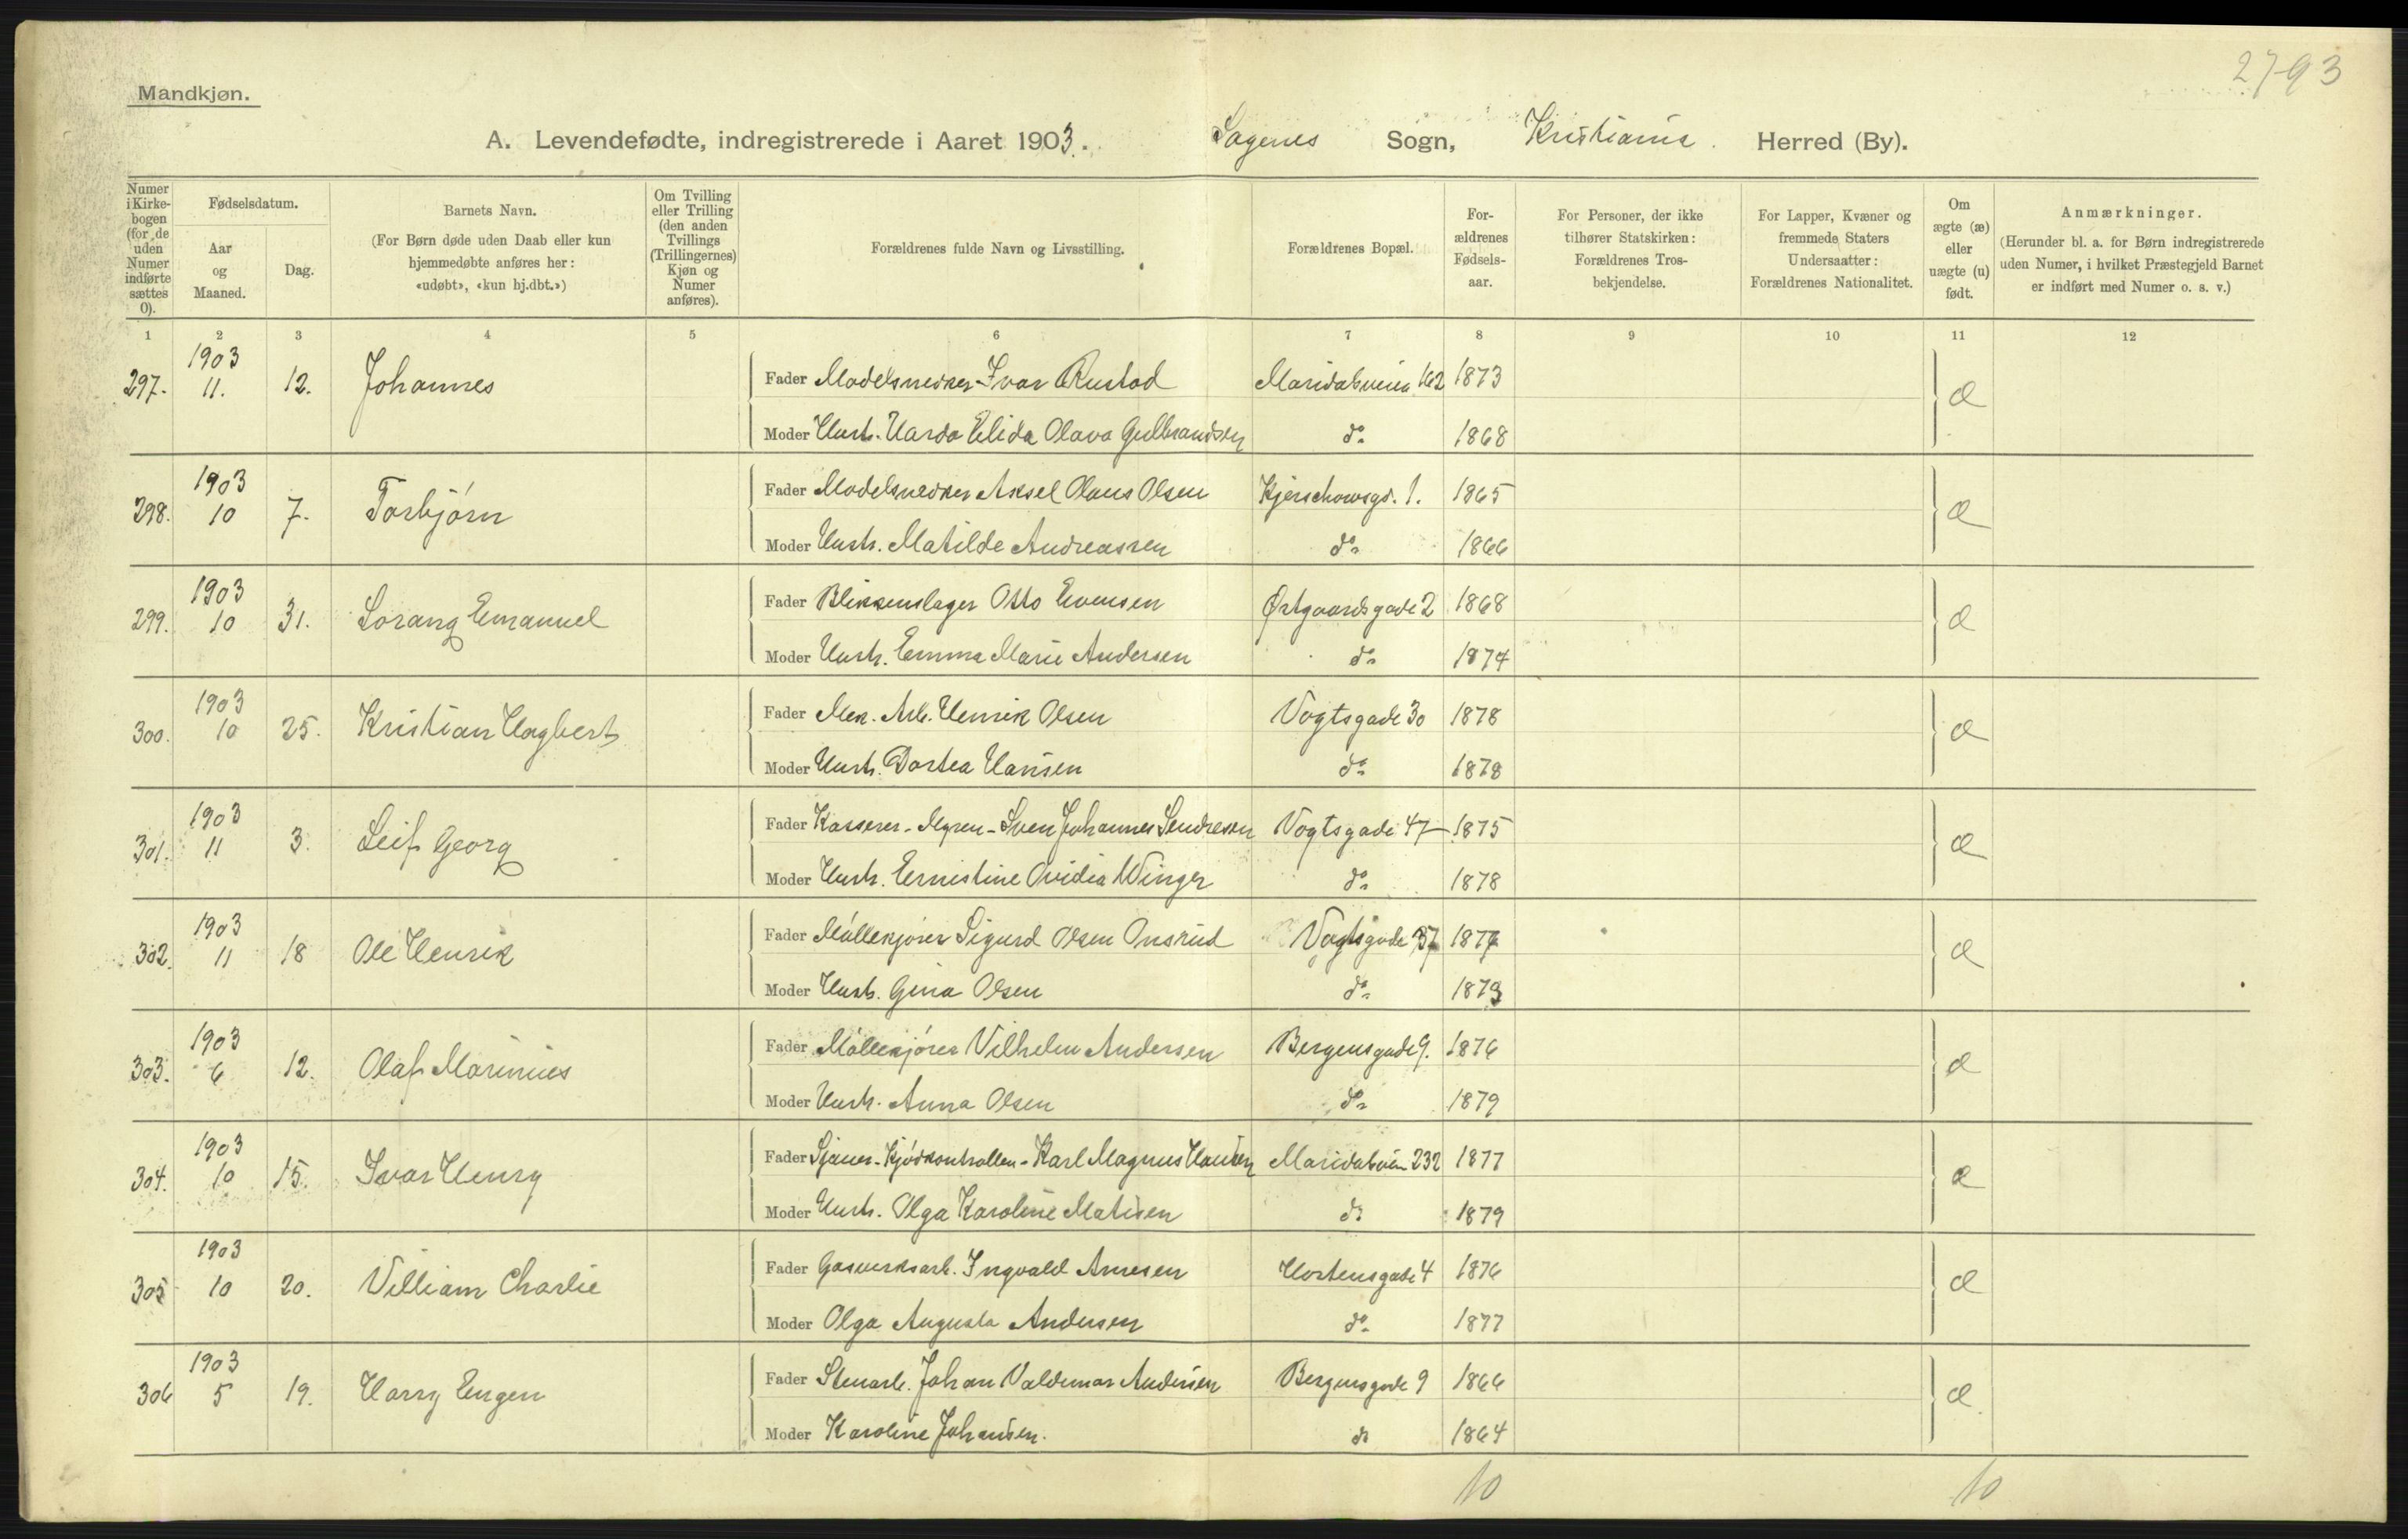 2793
Mandkjøn.
A. Levendefødte, indregistrerede i Aaret 1903. Sagenes Sogn, Kristiania. Herred (By).
Numer i Kirkebogen (for de uden Numer indførte sættes 0).
Fødselsdatum.
Aar og Maaned.
Dag.
Barnets Navn.
(For Børn døde uden Daab eller kun hjemmedøbte anføres her: «udøbt», «kun hj.dbt.»)
Om Tvilling eller Trilling (den anden Tvillings (Trillingernes) Kjøn og Numer anføres).
Forældrenes fulde Navn og Livsstilling.
Forældrenes Bopæl.
Forældrenes Fødselsaar.
For Personer, der ikke tilhører Statskirken: Forældrenes Trosbekjendelse.
For Lapper, Kvæner og fremmede Staters Undersaatter: Forældrenes Nationalitet.
Om ægte (æ) eller uægte (u) født.
Anmærkninger.
(Herunder bl. a. for Børn indregistrerede uden Numer, i hvilket Præstegjeld Barnet er indført med Numer o. s. v.)
1 2 3 4 5 6 7 8 9 10 11 12
297. 1903 11. 12. Johannes Fader Modelsnedker Ivar Rustad Maridalsveien 162 1873 æ
Moder Hustr. Harda Elida Olava Gulbrandsen do 1868
298. 1903 10 7. Torbjørn Fader Modelsnedker Aksel Olaus Olsen Kjerschowsgd. 1. 1865 æ
Moder Hustr. Matilde Andreassen do 1866
299. 1903 10 31. Lorang Emanuel Fader Blikkenslager Otto Evensen Østgaardsgade 2 1868 æ
Moder Hustr. Emma Marie Andersen do 1874
300. 1903 10 25. Kristian Hagbert Fader Mek. Arb. Henrik Olsen Vogtsgade 30 1878 æ
Moder Hustr. Dortea Hansen do 1878
301. 1903 11 3. Leif Georg Fader Kasserer - Myren - Sven Johannes Sendresen Vogtsgade 47 1875 æ
Moder Hustr. Ernestine Ovidia Winger do 1878
302. 1903 11 18 Ole Henrik Fader Møllekjører Sigurd Olsen Onsrud Vogtsgade 1877 æ
Moder Hustr. Gina Olsen do 1879
303. 1903 6 12. Olaf Marinius Fader Møllekjører Vilhelm Andersen Bergensgade 9. 1876 æ
Moder Hustr. Anna Olsen do 1879
304. 1903 10 15. Ivar Henry Fader Sjauer - Kjødkontrollen - Karl Magnus Hansen Maridalsveien 232 1877 æ
Moder Hustr. Olga Karoline Matisen do 1879
305 1903 10 20. Villiam Charlie Fader Gasverksarb. Ingvald Arnesen Hortensgade 4 1876 æ
Moder Olga Augusta Andersen do 1877
306 1903 5 19. Harry Eugen Fader Stenarb. Johan Valdemar Andersen Bergensgade 9 1866 æ
Moder Karoline Johansen. do 1864
10 10